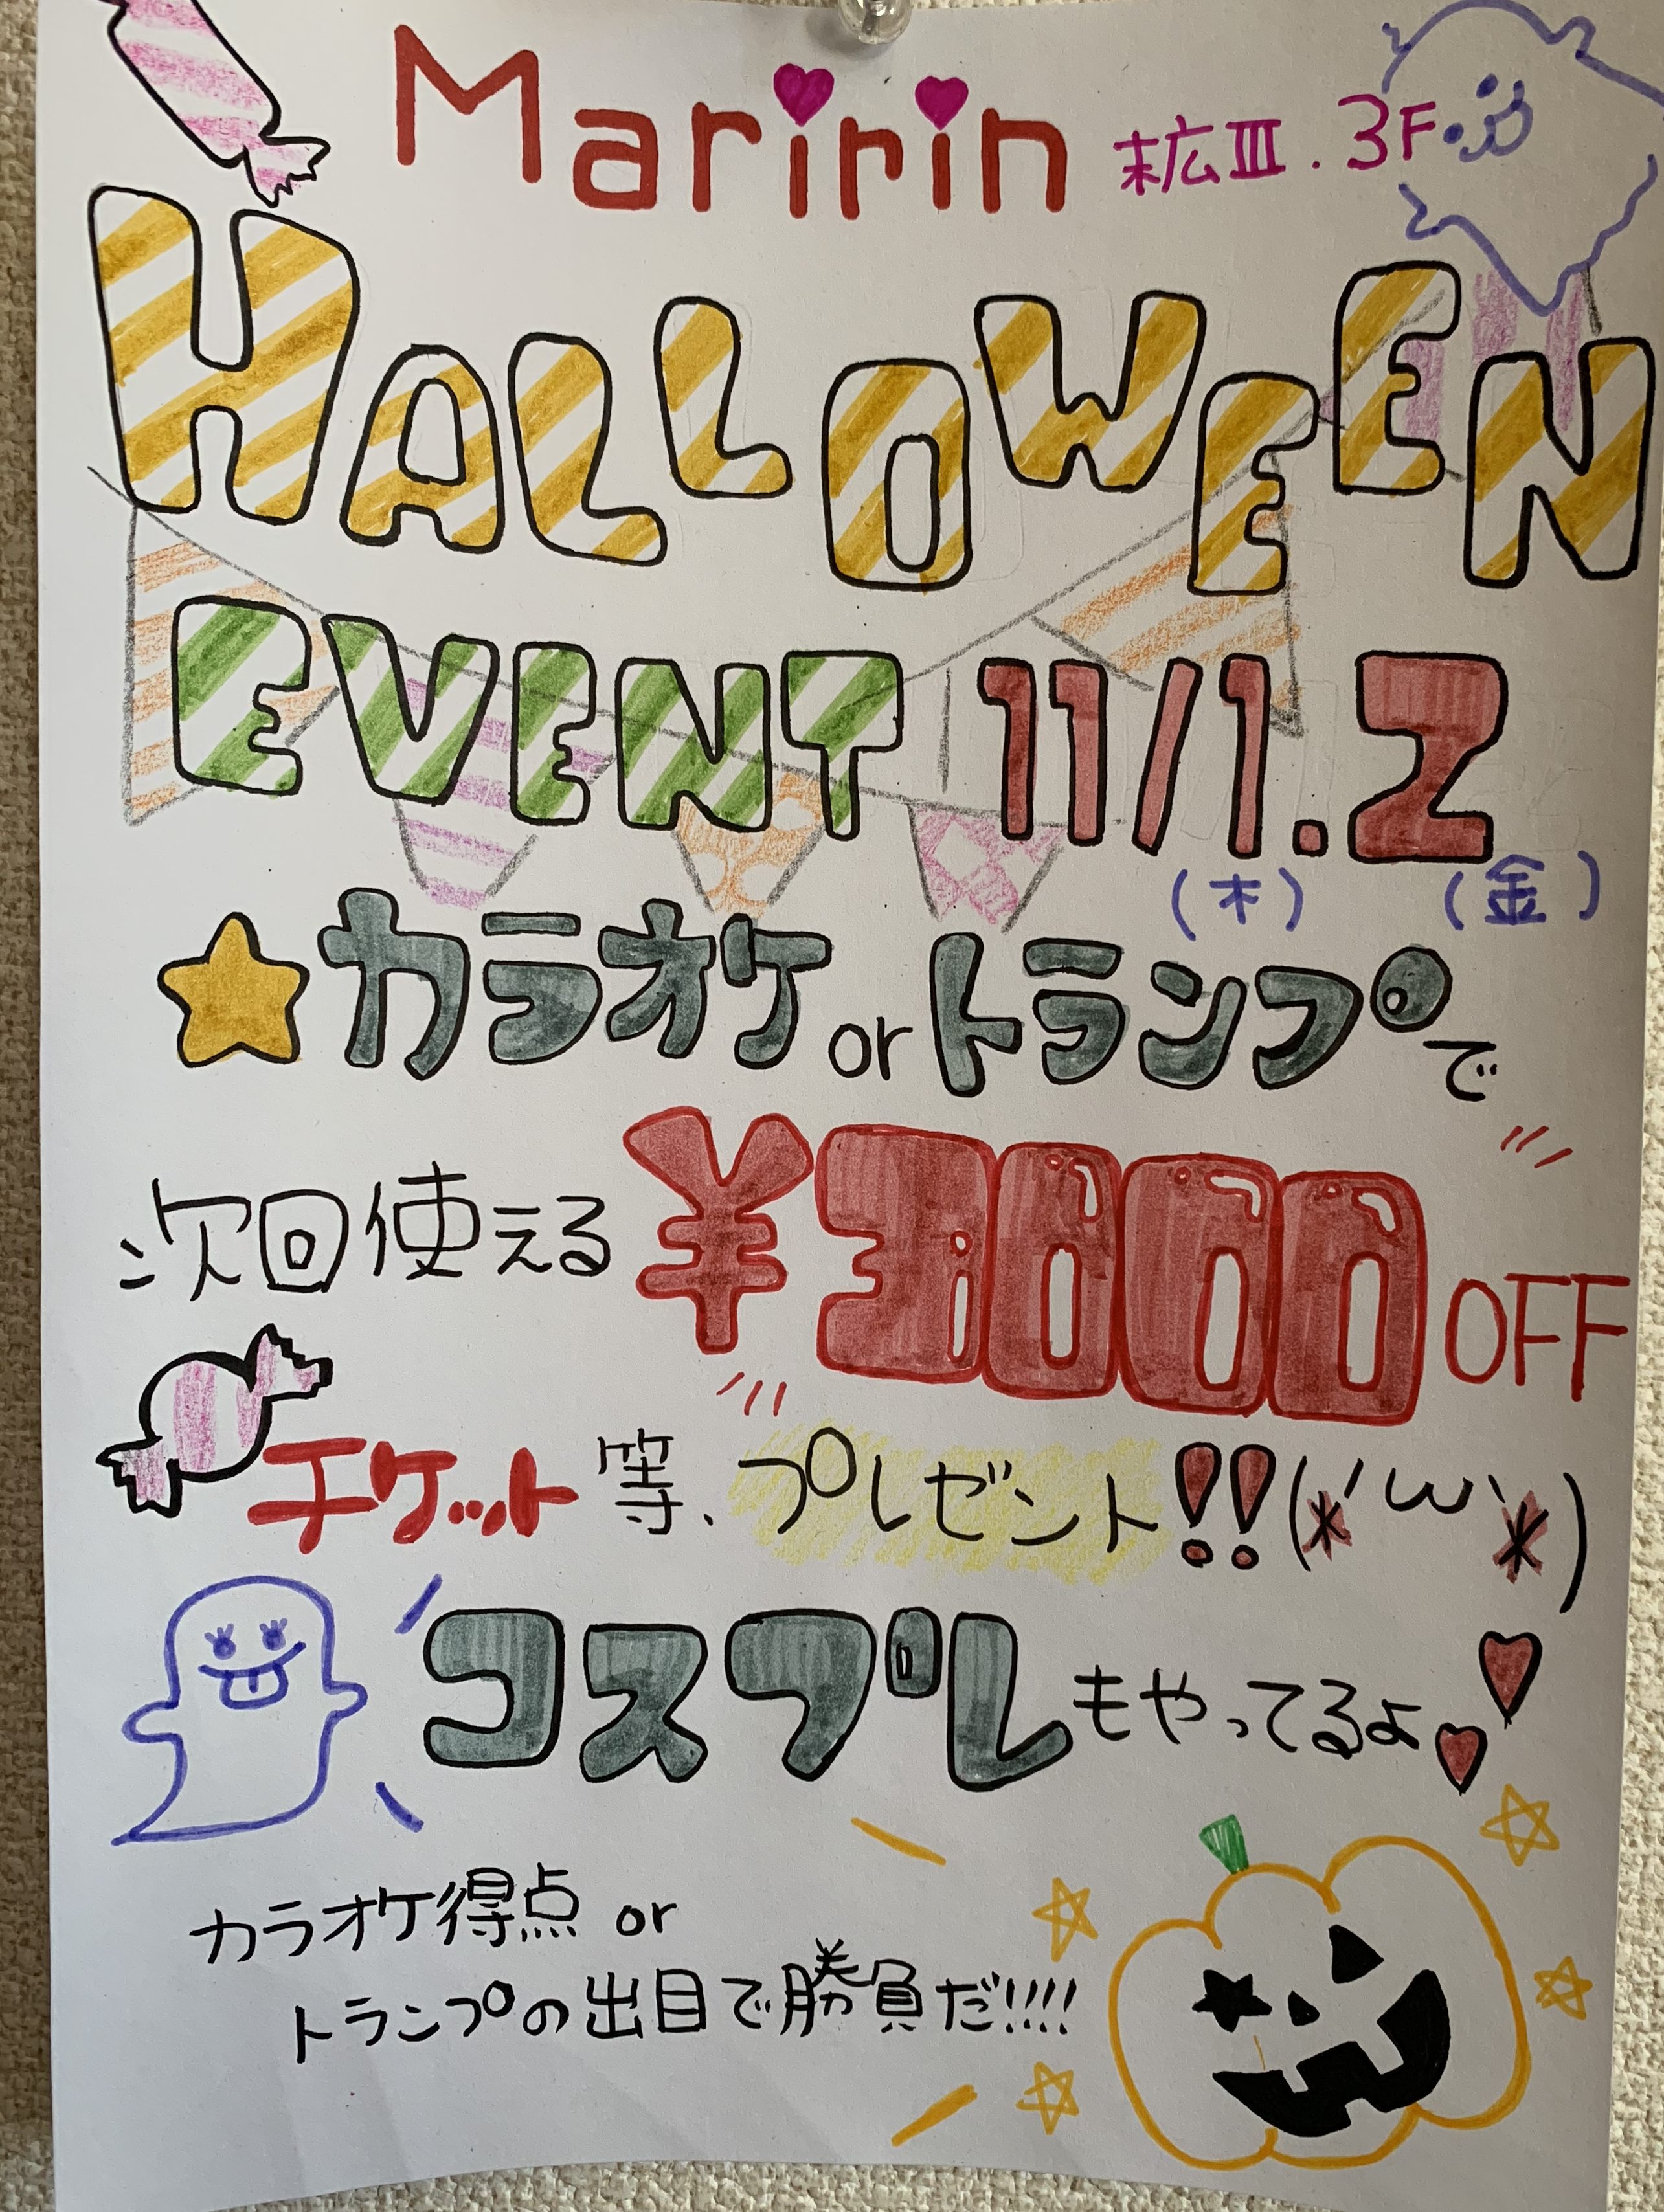 Maririn 末広Ⅲ.3F
HALLOWEEN
EVENT 11/1.2
(木) (金)
★カラオケorトランプで
次回使える¥3000OFF
チケット等、プレゼント!!(*´ω`*)
コスプレもやってるよ♥♥
カラオケ得点 or
トランプの出目で勝負だ!!!!